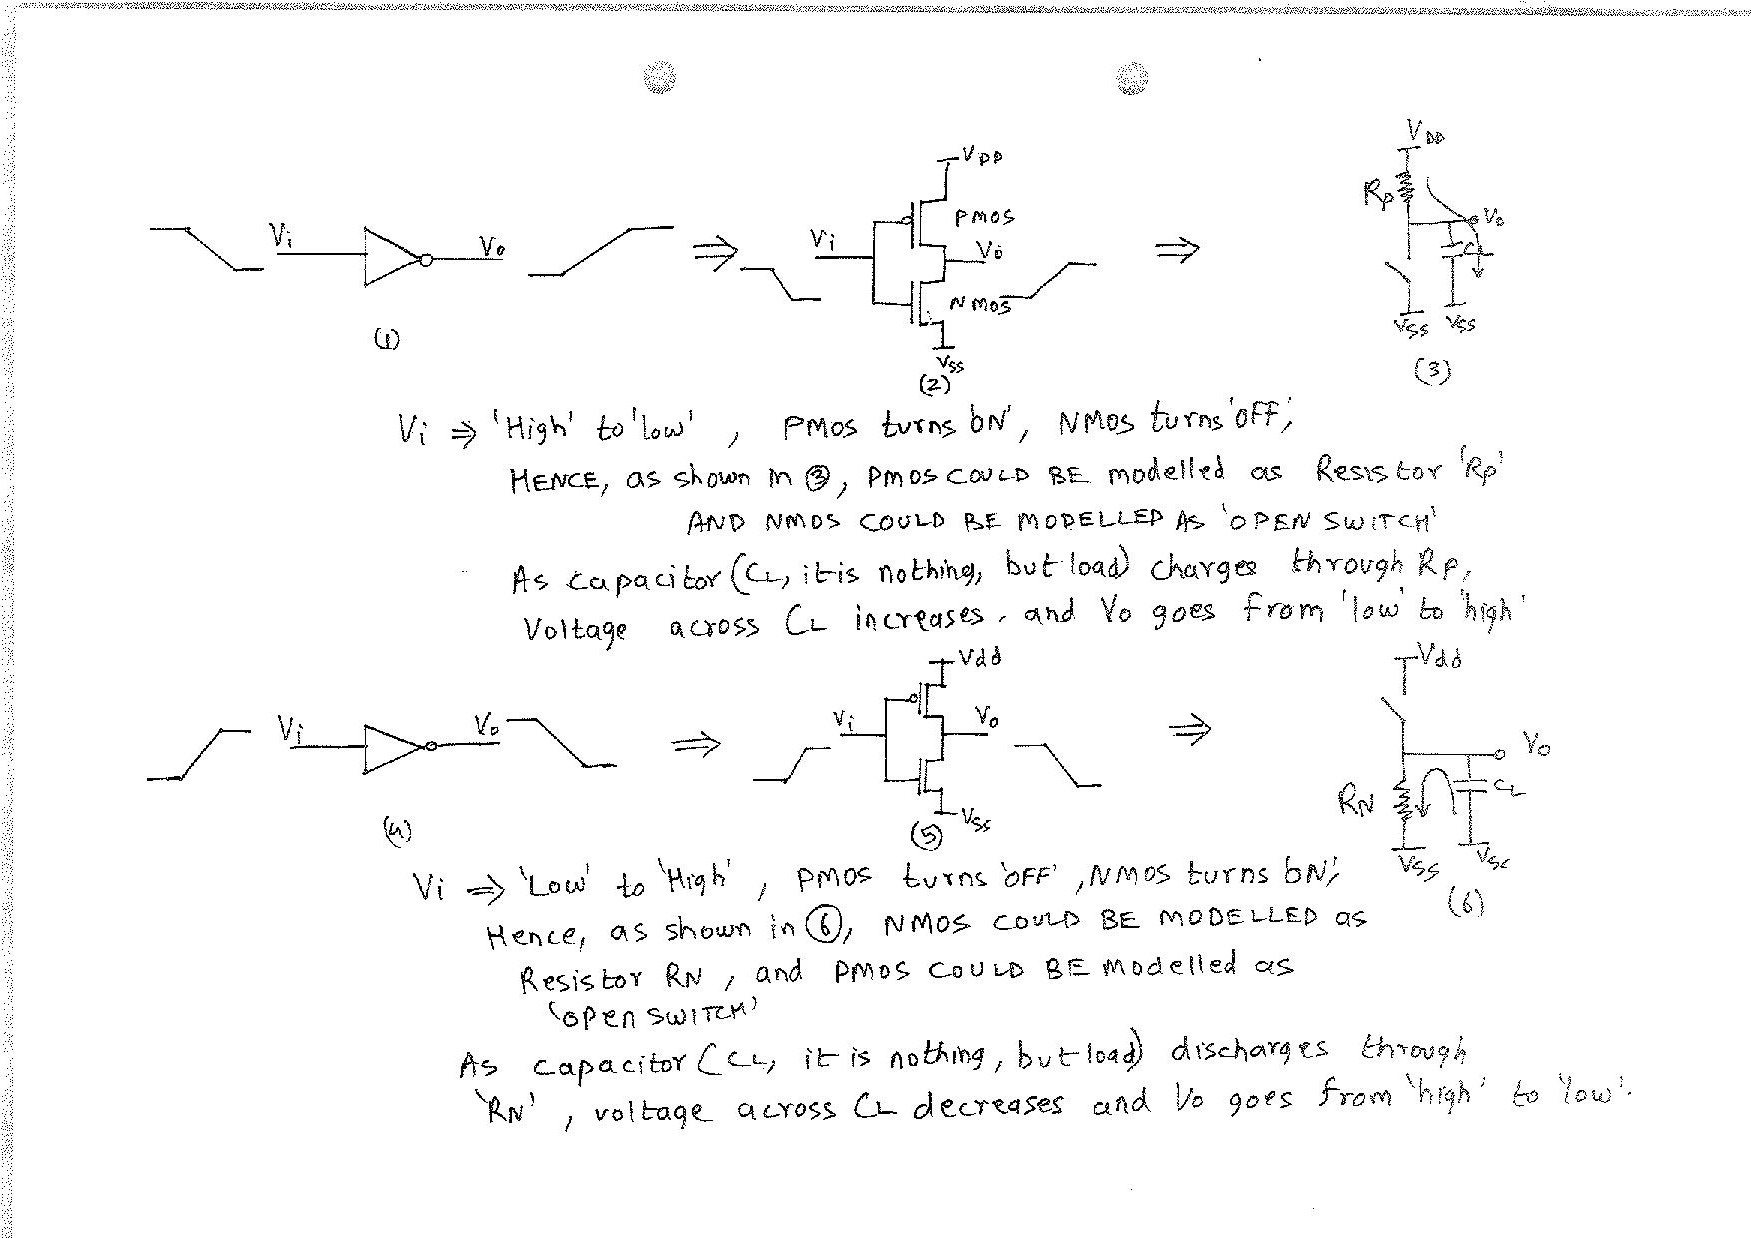 V DD
VDD
Rp
PMOS
Vi
Vo
Vi
Vo
Vo
CL
NMOS
Vss
Vss
Vss
(1)
(2)
(3)
Vi ⇒ 'High' to 'low' , PMOS turns 'ON', NMOS turns 'OFF',
HENCE, as shown in ③, PMOS COULD BE modelled as Resistor 'Rp'
AND NMOS COULD BE MODELLED AS 'OPEN SWITCH'
As capacitor (CL, it is nothing, but load) charges through Rp,
Voltage across CL increases. and Vo goes from 'low' to 'high'
Vdd
Vdd
Vi
Vo
Vi
Vo
Vo
RN
CL
Vss
Vss
Vss
(4)
(5)
(6)
Vi ⇒ 'Low' to 'High' , PMOS turns 'OFF' , NMOS turns 'ON',
Hence, as shown in ⑥, NMOS COULD BE MODELLED as
Resistor RN , and PMOS COULD BE modelled as
'open SWITCH'
As capacitor (CL, it is nothing, but load) discharges through
'RN' , voltage across CL decreases and Vo goes from 'high' to 'low'.